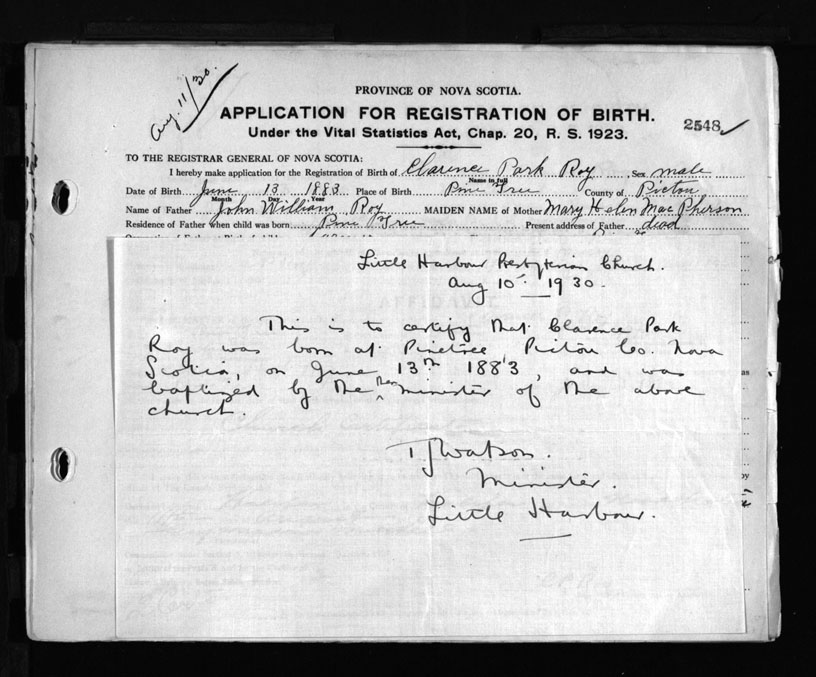 Aug. 11/30.
PROVINCE OF NOVA SCOTIA.
APPLICATION FOR REGISTRATION OF BIRTH.
Under the Vital Statistics Act, Chap. 20, R. S. 1923.
2548
TO THE REGISTRAR GENERAL OF NOVA SCOTIA:
I hereby make application for the Registration of Birth of Clarence Park Roy Sex male
Name in full
Date of Birth June 13 1883 Place of Birth Pine Tree County of Pictou
Month Day Year
Name of Father John William Roy MAIDEN NAME of Mother Mary Helen MacPherson
Residence of Father when child was born Pine Tree Present address of Father dead
Little Harbour Presbyterian Church.
Aug 10th 1930.
This is to certify that Clarence Park
Roy was born at Pinetree Pictou Co. Nova
Scotia, on June 13th 1883, and was
baptized by the then minister of the above
church.
T J Watson.
Minister.
Little Harbour.